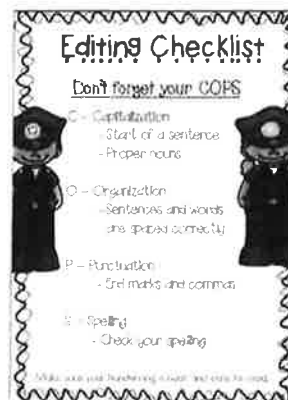 Editing Checklist
Don't forget your COPS
C - Capitalization
- Start of a sentence
- Proper nouns
O - Organization
- Sentences and words
are spaced correctly
P - Punctuation
- End marks and commas
S - Spelling
- Check your spelling
Make sure your handwriting is neat and easy to read.